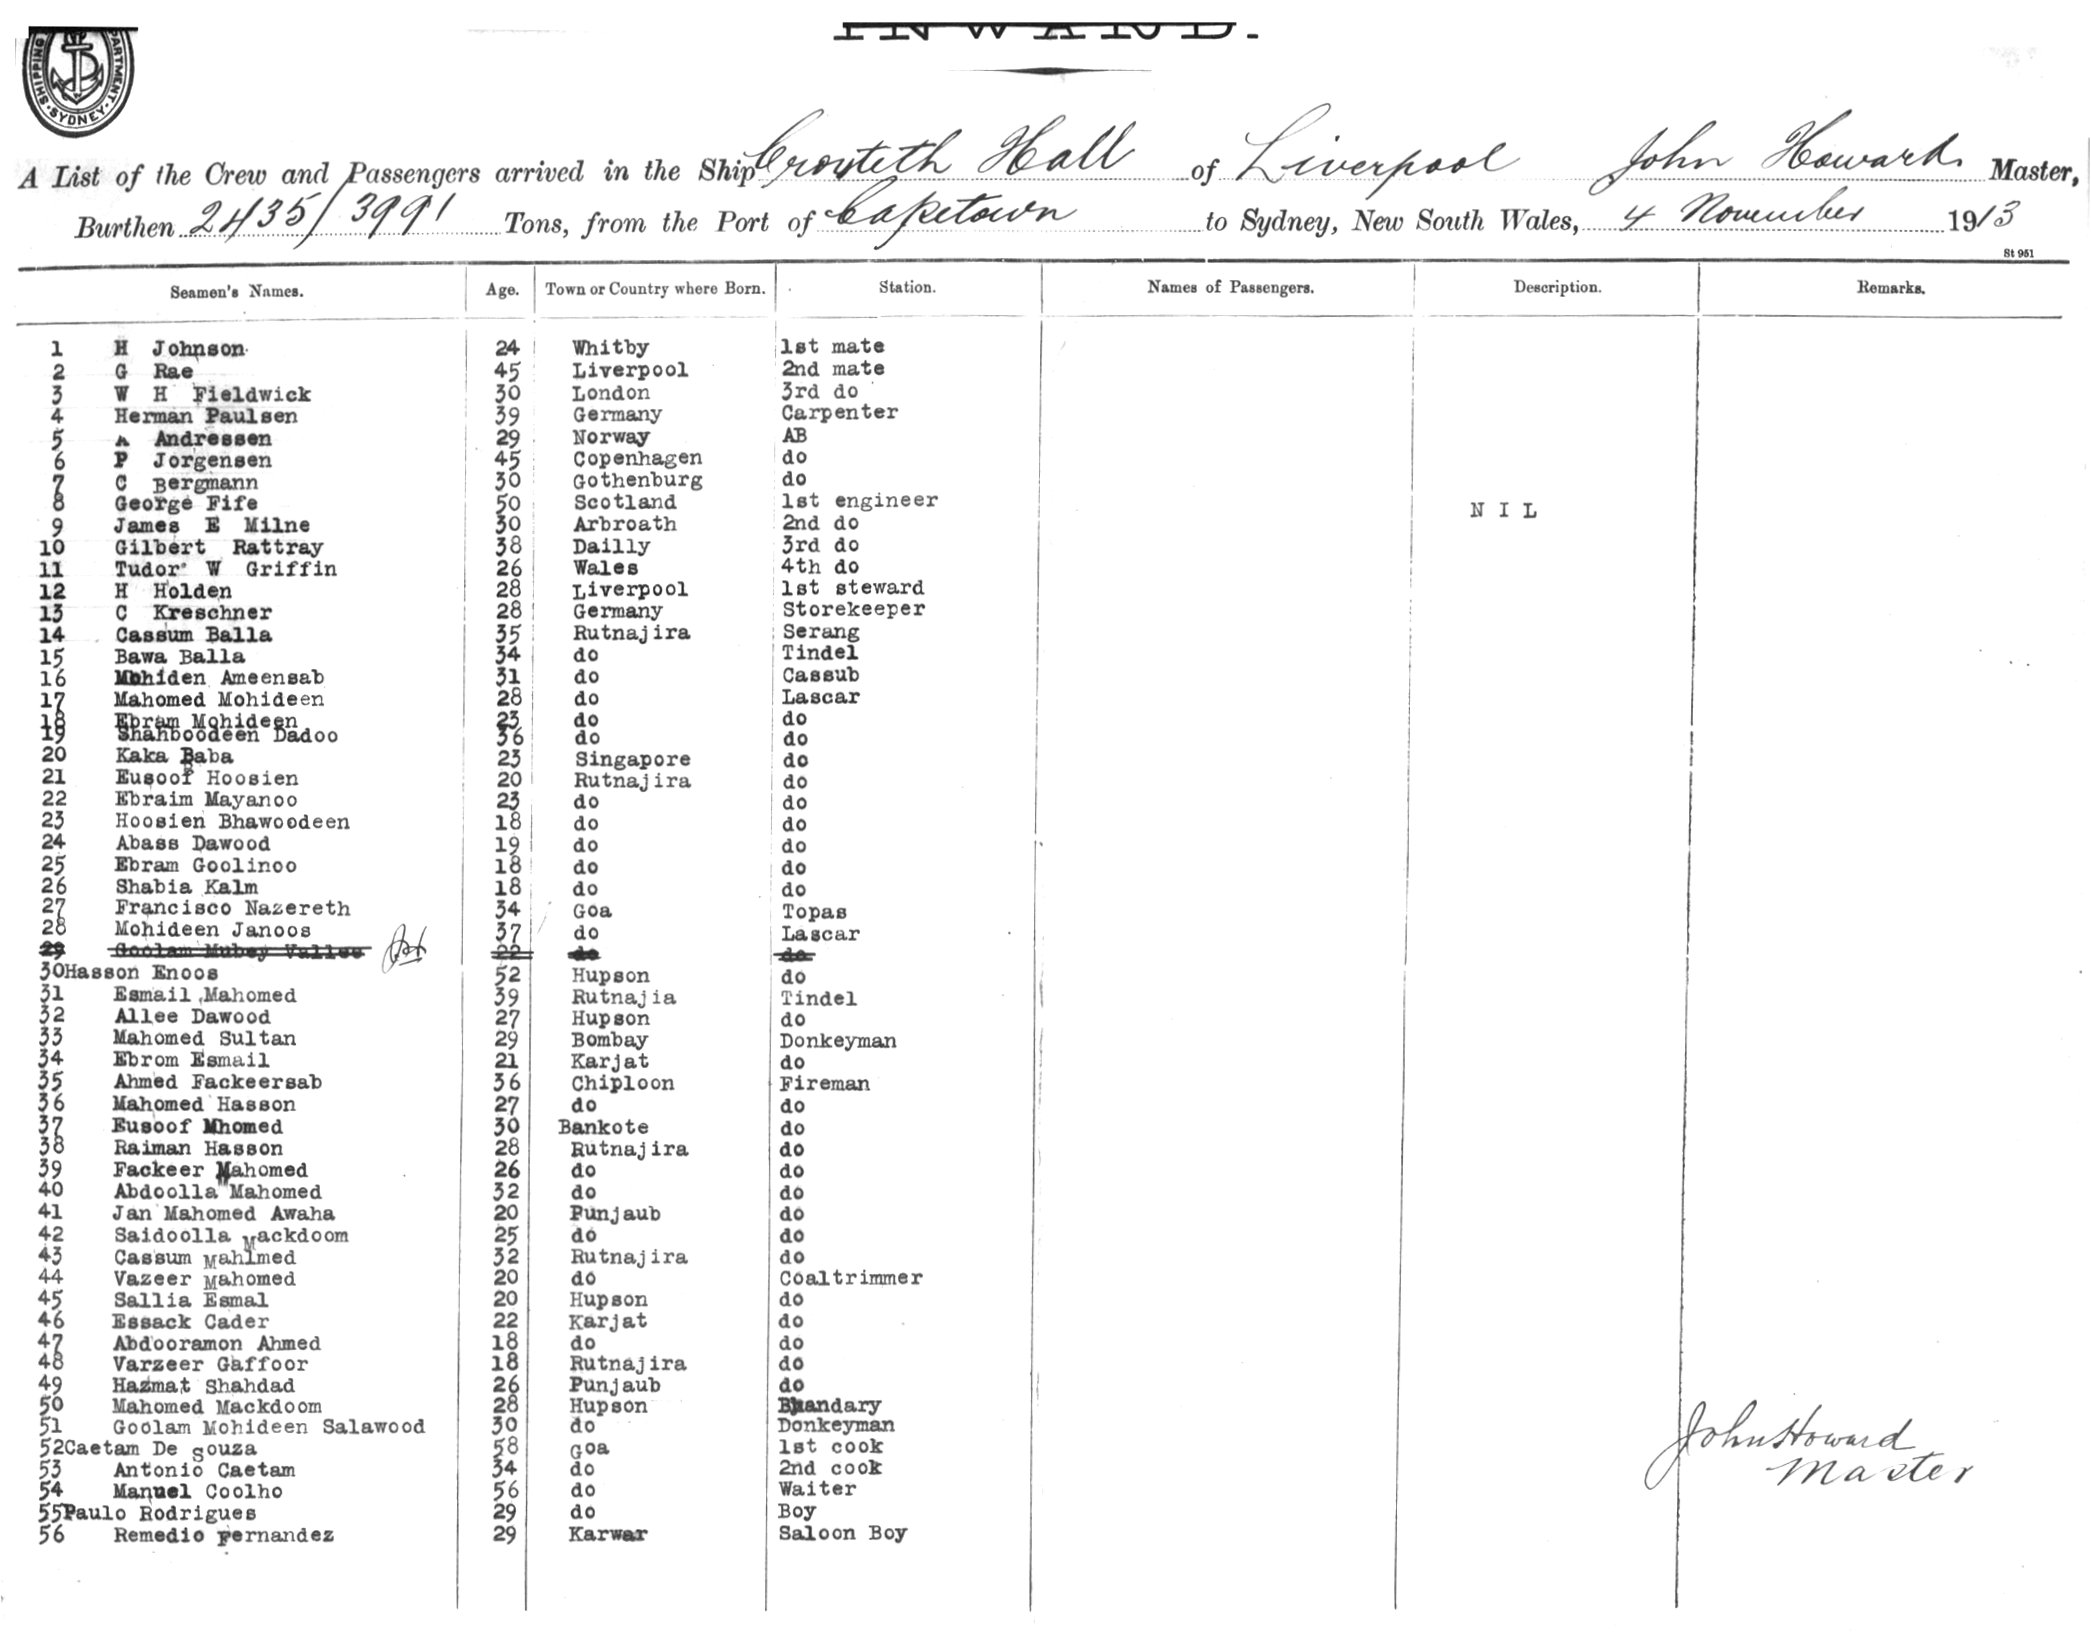 INWARD.
SHIPPING DEPARTMENT. SYDNEY
A List of the Crew and Passengers arrived in the Ship Croxteth Hall of Liverpool John Howard Master,
Burthen 2435/3991 Tons, from the Port of Capetown to Sydney, New South Wales, 4 November 1913
St 951
Seamen's Names. Age. Town or Country where Born. Station. Names of Passengers. Description. Remarks.
1 H Johnson 24 Whitby 1st mate
2 G Rae 45 Liverpool 2nd mate
3 W H Fieldwick 30 London 3rd do
4 Herman Paulsen 39 Germany Carpenter
5 A Andressen 29 Norway AB
6 P Jorgensen 45 Copenhagen do
7 C Bergmann 30 Gothenburg do
8 George Fife 50 Scotland 1st engineer
NIL
9 James E Milne 30 Arbroath 2nd do
10 Gilbert Rattray 38 Dailly 3rd do
11 Tudor W Griffin 26 Wales 4th do
12 H Holden 28 Liverpool 1st steward
13 C Kreschner 28 Germany Storekeeper
14 Cassum Balla 35 Rutnajira Serang
15 Bawa Balla 34 do Tindel
16 Mohiden Ameensab 31 do Cassub
17 Mahomed Mohideen 28 do Lascar
18 Ebram Mohideen 23 do do
19 Shahboodeen Dadoo 36 do do
20 Kaka Baba 23 Singapore do
21 Eusoof Hoosien 20 Rutnajira do
22 Ebraim Mayanoo 23 do do
23 Hoosien Bhawoodeen 18 do do
24 Abass Dawood 19 do do
25 Ebram Goolinoo 18 do do
26 Shabia Kalm 18 do do
27 Francisco Nazereth 34 Goa Topas
28 Mohideen Janoos 37 do Lascar
29 Goolam Mubey Vallee 22 do do
30 Hasson Enoos 52 Hupson do
31 Esmail Mahomed 39 Rutnajia Tindel
32 Allee Dawood 27 Hupson do
33 Mahomed Sultan 29 Bombay Donkeyman
34 Ebrom Esmail 21 Karjat do
35 Ahmed Fackeersab 36 Chiploon Fireman
36 Mahomed Hasson 27 do do
37 Eusoof Mhomed 30 Bankote do
38 Raiman Hasson 28 Rutnajira do
39 Fackeer Mahomed 26 do do
40 Abdoolla Mahomed 32 do do
41 Jan Mahomed Awaha 20 Punjaub do
42 Saidoolla Mackdoom 25 do do
43 Cassum Mahimed 32 Rutnajira do
44 Vazeer Mahomed 20 do Coaltrimmer
45 Sallia Esmal 20 Hupson do
46 Essack Cader 22 Karjat do
47 Abdooramon Ahmed 18 do do
48 Varzeer Gaffoor 18 Rutnajira do
49 Hazmat Shahdad 26 Punjaub do
50 Mahomed Mackdoom 28 Hupson Bhandary
51 Goolam Mohideen Salawood 30 do Donkeyman
52 Caetam De Souza 58 Goa 1st cook
53 Antonio Caetam 34 do 2nd cook
54 Manuel Coolho 56 do Waiter
55 Paulo Rodrigues 29 do Boy
56 Remedio Fernandez 29 Karwar Saloon Boy
John Howard
Master